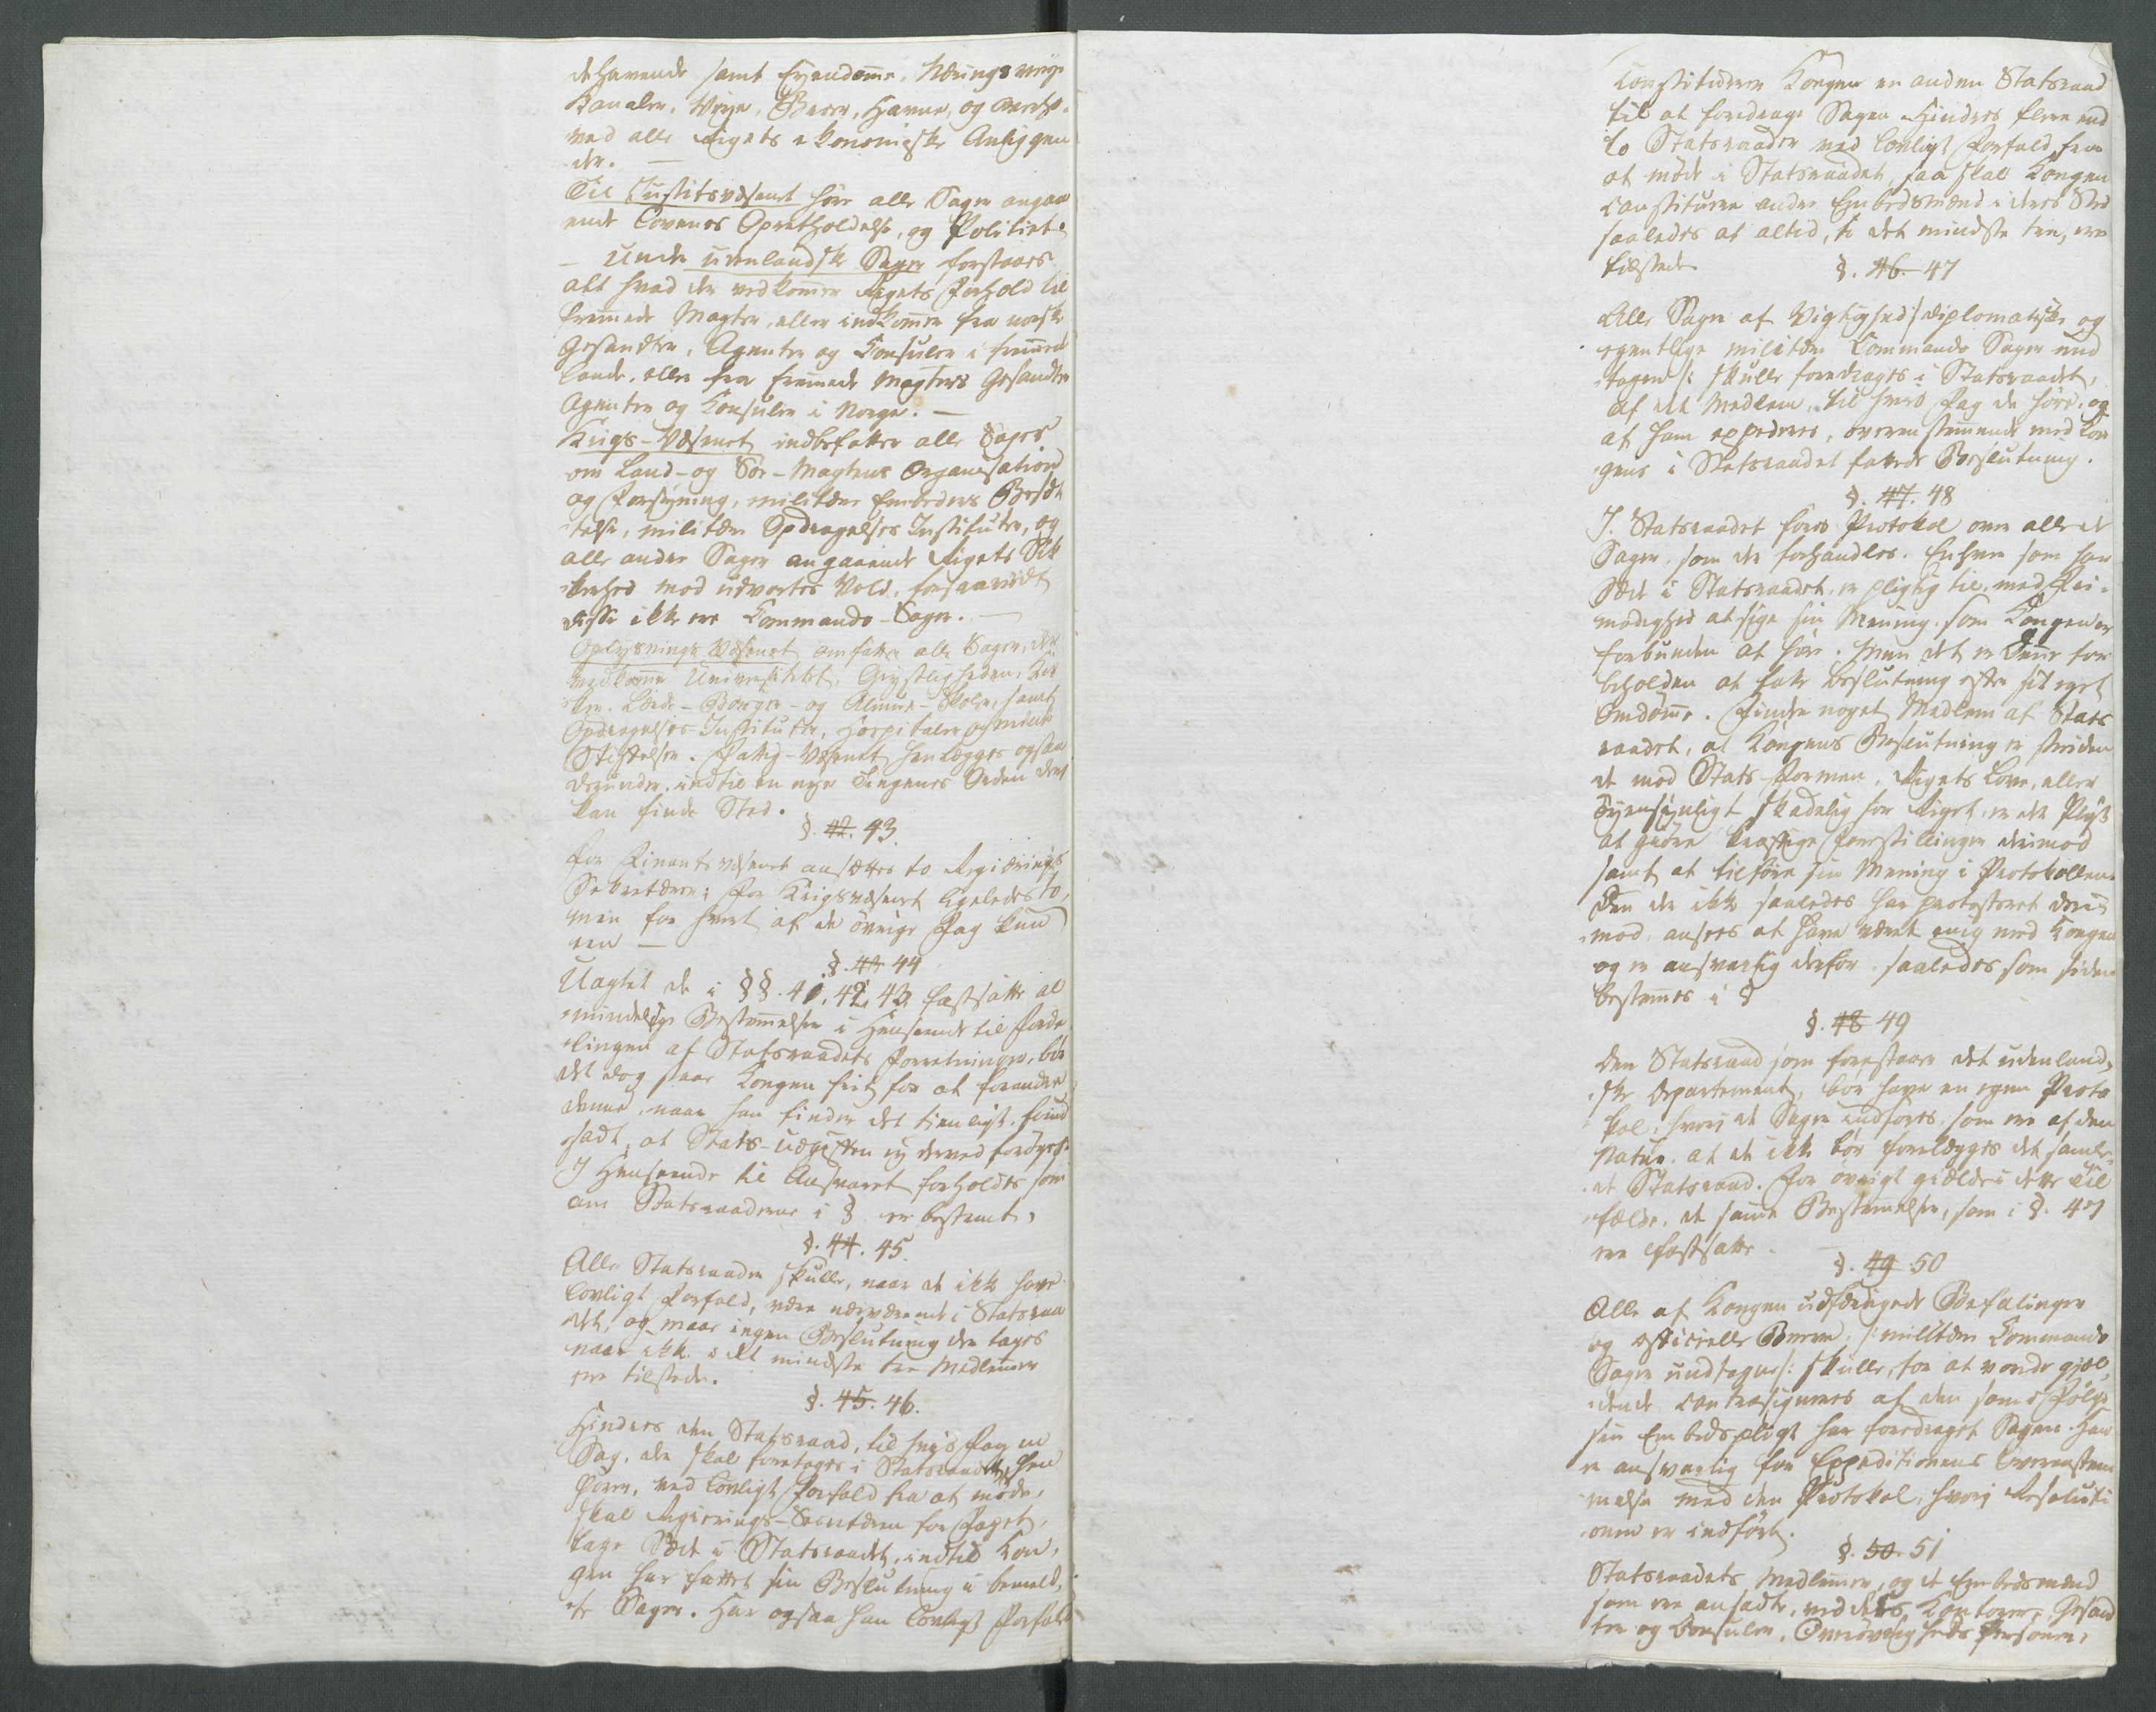 dehavende samt Eiendomme, Næringsveje
Kanaler, Veie, Broer, Havne, og
ved alle Rigets ekonomiske Anliggen
der. —
Til Justitsvæsenet høre alle Sager angaa
ende Lovenes Opretholdelse, og Politiet.
— Under udenlandske Sager forstaaes
alt hvad der vedkommer Rigets Forhold til
fremmede Magter, eller indkommer fra norske
Gesandter, Agenter og Consuler i fremmede
Lande, eller fra fremmede Magters Gesandter
Agenter og Consuler i Norge. —
Krigs-Væsenet indbefatter alle Sager
om Land- og Søe-Magtens Organisation
og Forsyning, militære Embeders Besæt
telse, militære Opdragelses Instituter, og
alle andre Sager angaaende Rigets Sik
kerhed mod udvortes Vold, forsaavidt
disse ikke ere Commando-Sager. —
Oplysnings Væsenet omfatter alle Sager, der
vedkomme Universitetet, Geistligheden, Kir
ker, Lærde- Borger- og Almue-Skoler, samt
Opdragelses-Instituter, Hospitaler og milde
Stiftelser. Fattig-Væsenet henlægges ogsaa
derunder, indtil en nye Tingenes Orden deri
kan finde Sted.
§. 42. 43.
For Finantsvæsenet ansættes to Regierings
Secretærer; For Krigsvæsenet ligeledes to,
men for hvert af de øvrige Fag kun
een —
§. 43 44
Uagtet de i §§. 41, 42, 43 fastsatte al
mindelige Bestemmelser i Henseende til Forde
lingen af Statsraadets Forretninger, bør
det dog staae Kongen frit for at forandre
denne, naar han finder det tienligt, forud
sadt, at Stats-Udgifterne ej derved forøges.
I Henseende til Ansvaret forholdes som
om Statsraaderne i § er bestemt.
§. 44. 45.
Alle Statsraader skulle, naar de ikke have
lovligt Forfald, være nærværende i Statsraa
det, og maae ingen Beslutning der tages
naar ikke i det mindste tre Medlemmer
ere tilstede.
§. 45. 46.
Hindres den Statsraad, til hvis Fag en
Sag, der skal foretages i Statsraadet, hen
hører, ved lovligt Forfald fra at møde,
skal Regierings-Secretæren for Faget,
tage Sæde i Statsraadet, indtil Kon,
gen har fattet sin Beslutning i bemeld,
te Sager. Har ogsaa han lovligt Forfald
Constituerer Kongen en anden Statsraad
til at foredrage Sagen. Hindres flere end
to Statsraader ved lovligt Forfald fra
at møde i Statsraadet, saa skal Kongen
constituere andre Embedsmænd i deres Sted
saaledes at altid, i det mindste tre, ere
tilstede
§. 46. 47
Alle Sager af Vigtighed /: diplomatiske og
egentlige militære Commando Sager und
tagen :/ skulle foredrages i Statsraadet,
af det Medlem, til hvis Fag de høre, og
af ham expederes, overenstemmende med Kon
gens i Statsraadet fattede Beslutning.
§. 47. 48
I Statsraadet føres Protokol over alle de
Sager, som der forhandles. Enhver som har
Sæde i Statsraadet, er pligtig til, med Fri-
modighed at sige sin Mening, som Kongen er
forbunden at høre. Men det er Denne for
beholden at fatte Beslutning efter sit eget
Omdømme. Finder noget Medlem af Stats
raadet, at Kongens Beslutning er striden
de mod Stats-Formen, Rigets Love, eller
øiensynligt skadelig for Riget, er det Pligt
at giøre kraftige Forestillinger derimod
samt at tilføre sin Mening i Protokollen.
Den der ikke saaledes har protesteret deri
mod, ansees at have været enig med Kongen
og er ansvarlig derfor, saaledes som siden
bestemmes i §
§. 48 49
Den Statsraad som forestaaer det udenland,
ske Departement, bør have en egen Proto
kol, hvori de Sager indføres, som ere af den
Natur, at de ikke bør forelægges det samle
de Statsraad. For øvrigt gielde i dette Til
fælde, de samme Bestemmelser, som i §. 47
ere fastsatte.
§. 49 50
Alle af Kongen udfærdigede Befalinger
og officielle Breve, /: militære Commando
Sager undtagne :/ skulle, for at vorde giæl,
dende contrasigneres af den som i Følge
sin Embedspligt har foredraget Sagen. Han
er ansvarlig for Expeditionens Overenstem
melse med den Protokol, hvori Resoluti
onen er indført.
§. 50. 51
Statsraadets Medlemmer, og de Embedsmænd
som ere ansadte, ved dets Kontorer, Gesand
ter og Consuler, Overøvrigheds Personer,